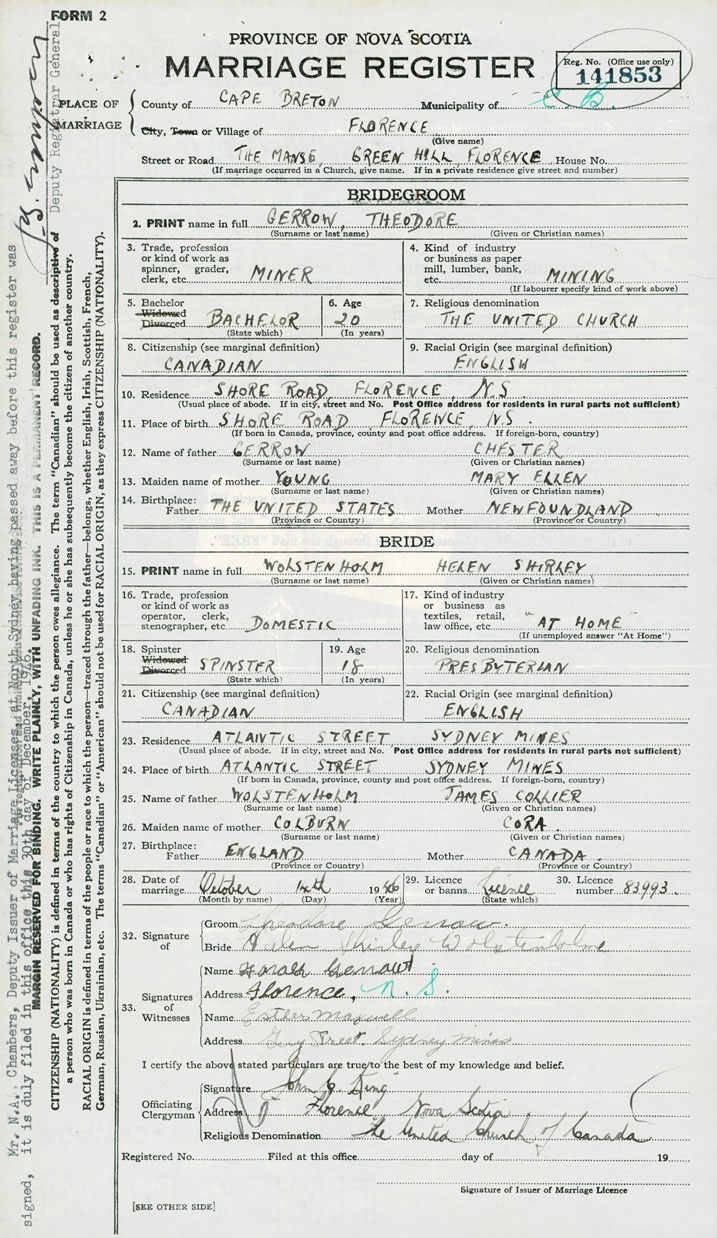 FORM 2
PROVINCE OF NOVA SCOTIA
MARRIAGE REGISTER
Reg. No. (Office use only)
141853
PLACE OF MARRIAGE
County of CAPE BRETON Municipality of C. B.
City, Town or Village of FLORENCE
(Give name)
Street or Road THE MANSE, GREEN HILL, FLORENCE House No.
(If marriage occurred in a Church, give name. If in a private residence give street and number)
BRIDEGROOM
2. PRINT name in full GERROW, THEODORE
(Surname or last name) (Given or Christian names)
3. Trade, profession or kind of work as spinner, grader, clerk, etc. MINER
4. Kind of industry or business as paper mill, lumber, bank, etc. MINING
(If labourer specify kind of work above)
5. Bachelor Widowed Divorced BACHELOR
(State which)
6. Age 20
(In years)
7. Religious denomination
THE UNITED CHURCH
8. Citizenship (see marginal definition)
CANADIAN
9. Racial Origin (see marginal definition)
ENGLISH
10. Residence SHORE ROAD, FLORENCE, N.S.
(Usual place of abode. If in city, street and No. Post Office address for residents in rural parts not sufficient)
11. Place of birth SHORE ROAD FLORENCE, N.S.
(If born in Canada, province, county and post office address. If foreign-born, country)
12. Name of father GERROW CHESTER
(Surname or last name) (Given or Christian names)
13. Maiden name of mother YOUNG MARY ELLEN
(Surname or last name) (Given or Christian names)
14. Birthplace: Father THE UNITED STATES Mother NEWFOUNDLAND
(Province or Country) (Province or Country)
BRIDE
15. PRINT name in full WOLSTENHOLM HELEN SHIRLEY
(Surname or last name) (Given or Christian names)
16. Trade, profession or kind of work as operator, clerk, stenographer, etc. DOMESTIC
17. Kind of industry or business as textiles, retail, law office, etc. "AT HOME"
(If unemployed answer "At Home")
18. Spinster Widowed Divorced SPINSTER
(State which)
19. Age 18
(In years)
20. Religious denomination
PRESBYTERIAN
21. Citizenship (see marginal definition)
CANADIAN
22. Racial Origin (see marginal definition)
ENGLISH
23. Residence ATLANTIC STREET SYDNEY MINES
(Usual place of abode. If in city, street and No. Post Office address for residents in rural parts not sufficient)
24. Place of birth ATLANTIC STREET SYDNEY MINES
(If born in Canada, province, county and post office address. If foreign-born, country)
25. Name of father WOLSTENHOLM JAMES COLLIER
(Surname or last name) (Given or Christian names)
26. Maiden name of mother COLBURN CORA
(Surname or last name) (Given or Christian names)
27. Birthplace: Father ENGLAND Mother CANADA
(Province or Country) (Province or Country)
28. Date of marriage October 14th 1946
(Month by name) (Day) (Year)
29. Licence or banns Licence
(State which)
30. Licence number 83993
32. Signature of
Groom Theodore Gerrow
Bride Helen Shirley Wolstenholme
33. Signatures of Witnesses
Name Gerrow
Address Florence, N. S.
Name Esther Maxwell
Address Street. Sydney Mines
I certify the above stated particulars are true to the best of my knowledge and belief.
Officiating Clergyman
Signature John C. King
Address Florence, Nova Scotia
Religious Denomination The United Church of Canada
Registered No. Filed at this office day of 19
Signature of Issuer of Marriage Licence
[SEE OTHER SIDE]
Deputy Registrar General
Mr. N.A. Chambers, Deputy Issuer of Marriage Licenses, at North Sydney having passed away before this register was
signed, it is duly filed in this office this 30th day of December, 1946.
MARGIN RESERVED FOR BINDING. WRITE PLAINLY, WITH UNFADING INK. THIS IS A PERMANENT RECORD.
CITIZENSHIP (NATIONALITY) is defined in terms of the country to which the person owes allegiance. The term "Canadian" should be used as descriptive of
a person who was born in Canada or who has rights of Citizenship in Canada, unless he or she has subsequently become the citizen of another country.
RACIAL ORIGIN is defined in terms of the people or race to which the person—traced through the father—belongs, whether English, Irish, Scottish, French,
German, Russian, Ukrainian, etc. The terms "Canadian" or "American" should not be used for RACIAL ORIGIN, as they express CITIZENSHIP (NATIONALITY).